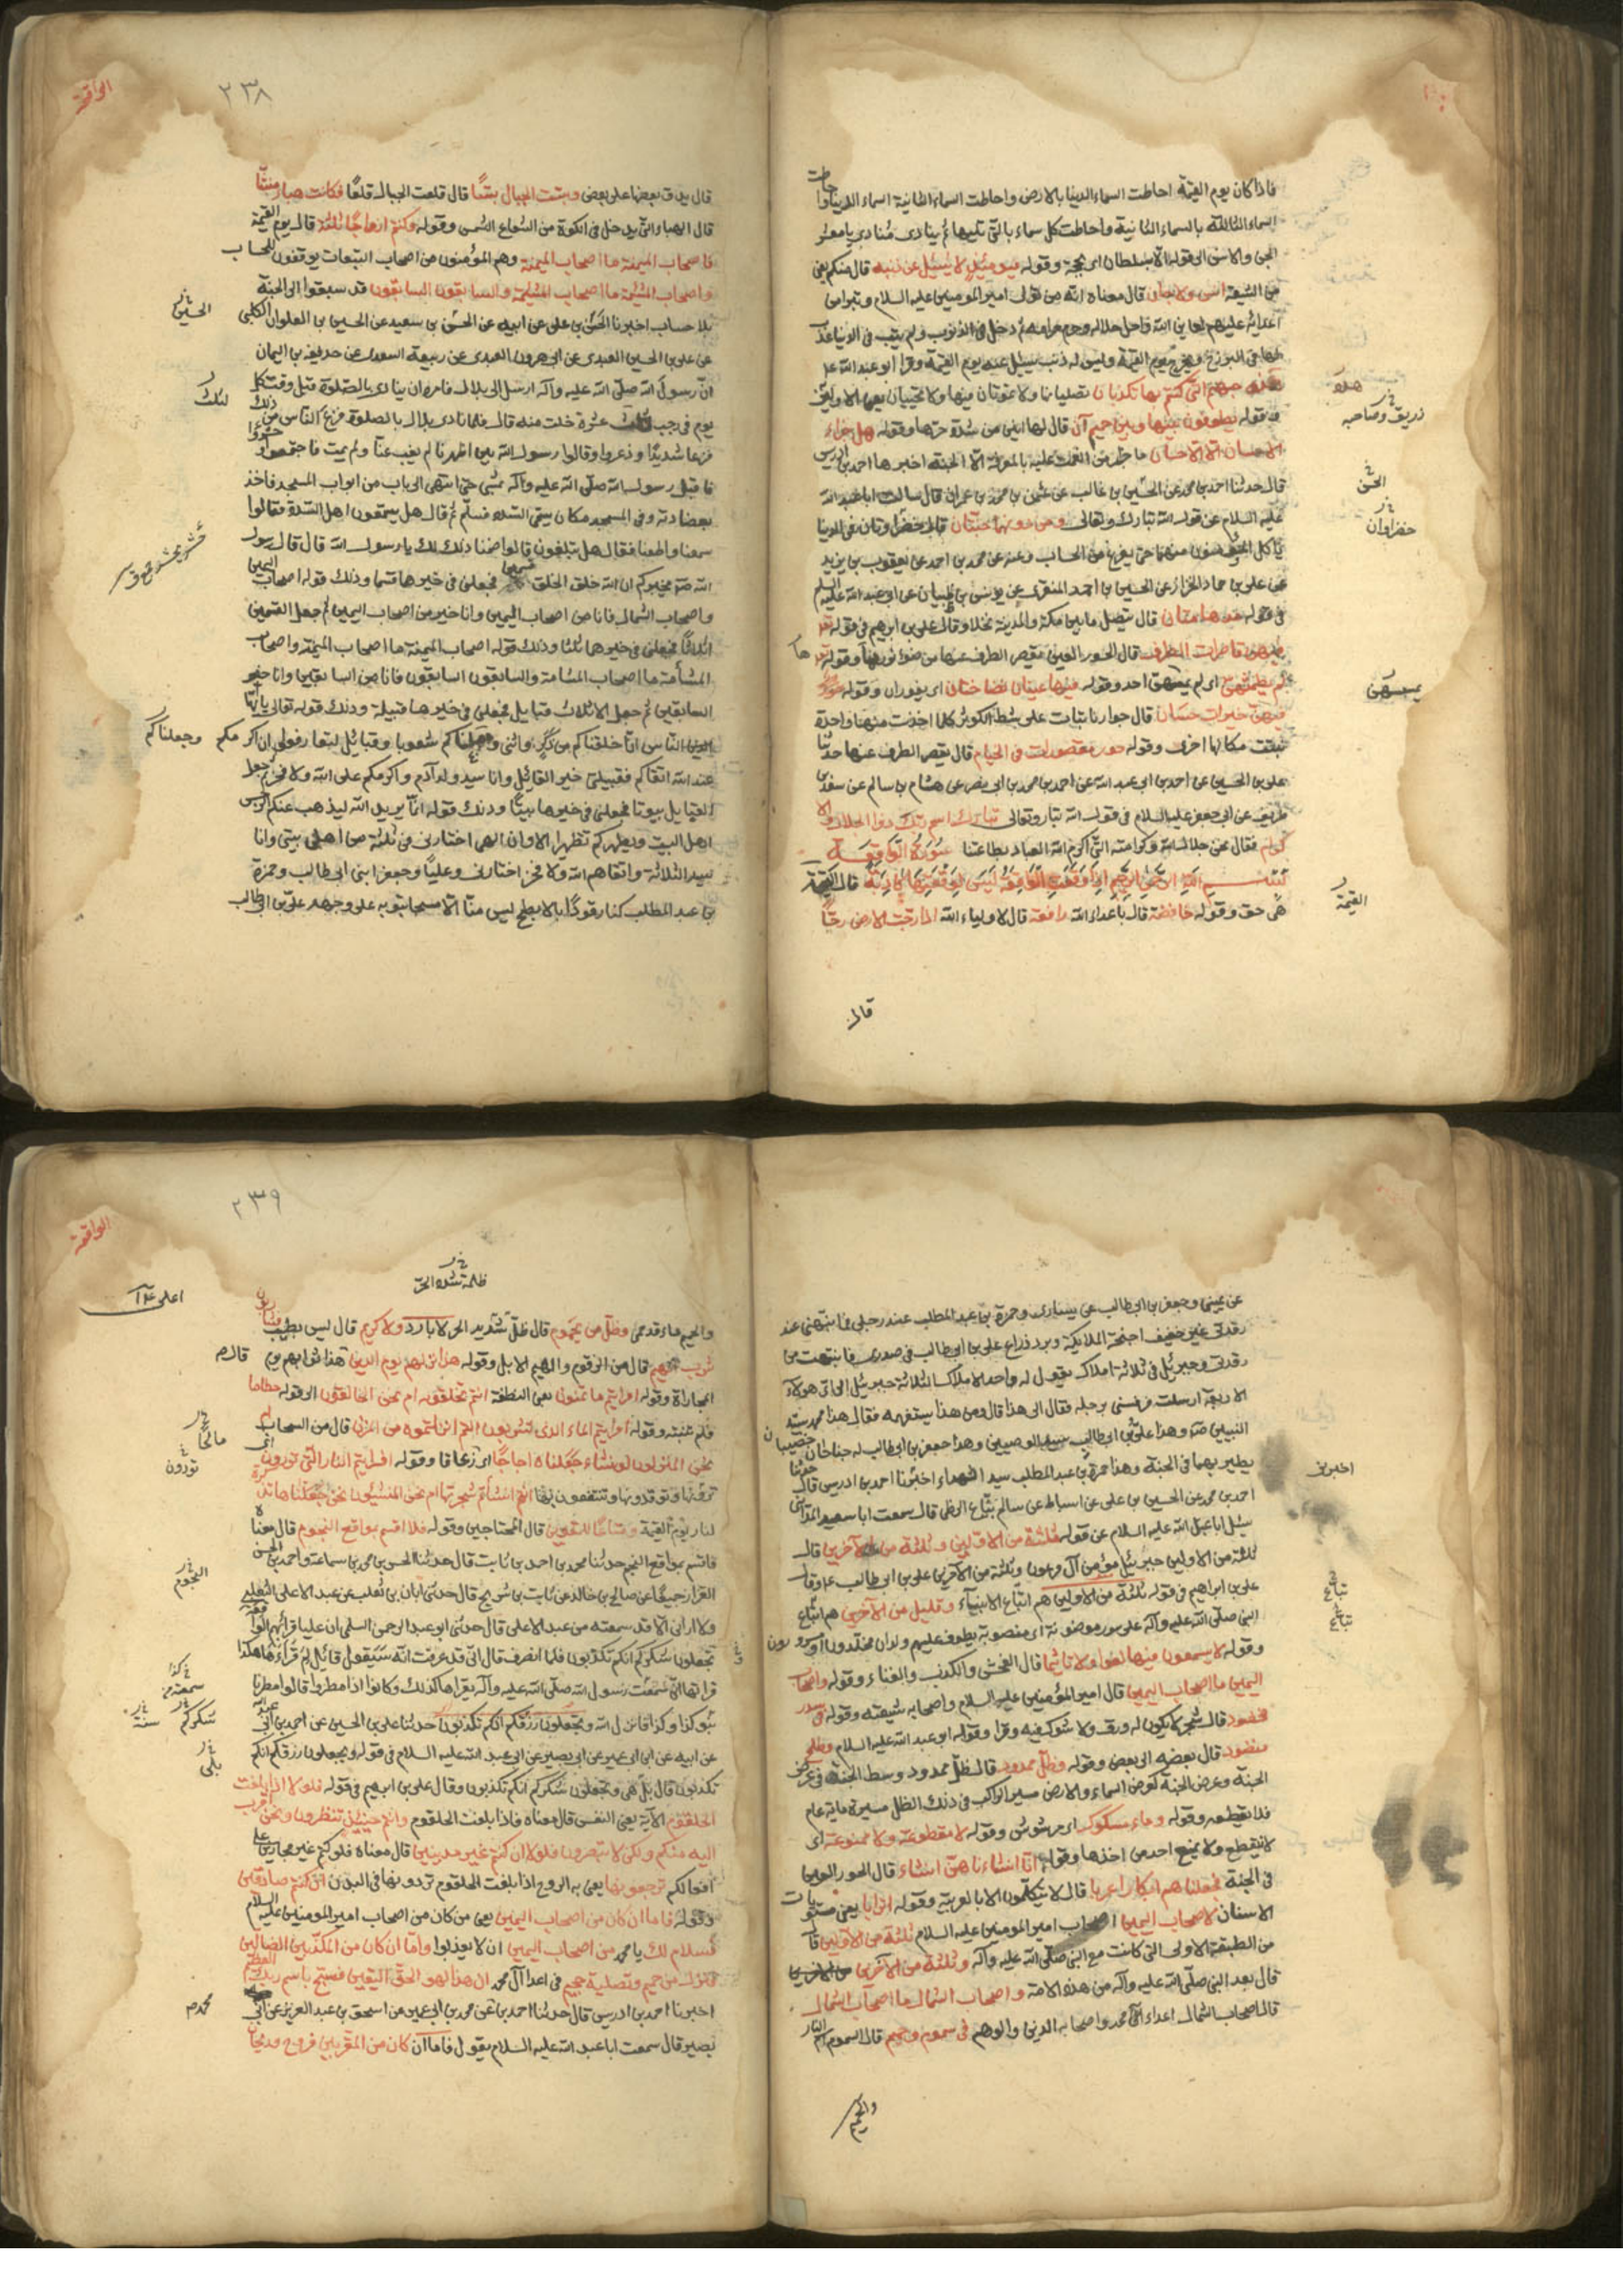 فاذا كان يوم القيمة احاطت السماء الدنيا بالارض واحاطت السماء الثانية السماء الدنيا واحاطت
السماء الثالثة بالسماء الثانية واحاطت كل سماء بالتى تليها ثم ينادى مناد يا معشر
الجن والانس الى قوله الا بسلطان اى بحجة وقوله فيومئذ لا يسئل عن ذنبه قال منكم يعنى
من الشيعة انس ولا جان قال معناه انه من تولى امير المومنين عليه السلام وتبرا من
اعدائه عليهم لعاين الله واحل حلاله وحرم حرامه ثم دخل فى الذنوب ولم يتب فى الدنيا عذب
لها فى البرزخ ويخرج يوم القيمة وليس له ذنب يسئل عنه يوم القيمة وقرا ابو عبد الله عليه
هذه جهنم التى كنتم بها تكذبان تصليانها ولا تموتان فيها ولا تحييان يعنى الاولين
وقوله يطوفون بينها وبين حميم آن قال لها انين من شدة حرها وقوله هل جزاء
الاحسان الا الاحسان ما جزاء من انعمت عليه بالمعرفة الا الجنة اخبرها احمد بن ادريس
قال حدثنا احمد بن محمد عن الحسين بن غالب عن عثمن بن محمد بن عمران قال سالت ابا عبد الله
عليه السلام عن قول الله تبارك وتعالى ومن دونهما جنتان قال خضراوتان فى الدنيا
ياكل المؤمنون منهما حتى يفرغ من الحساب وعنه عن محمد بن احمد عن يعقوب بن يزيد
عن على بن حماد الخزاز عن الحسين بن احمد المنقرى عن يونس بن ظبيان عن ابى عبد الله عليه السلم
فى قوله مدهامتان قال يتصل ما بين مكة والمدينة نخلا وقال على بن ابرهيم فى قوله
فيهن قاصرات الطرف قال الحور العين يقصر الطرف عنها من ضوء نورها وقوله
لم يطمثهن اى لم يمسهن احد وقوله فيهما عينان نضاختان اى يفوران وقوله
فيهن خيرات حسان قال جوار نابتات على شط الكوثر كلما اخذت منها واحدة
نبتت مكانها اخرى وقوله حور مقصورات فى الخيام قال يقصر الطرف عنها حدثنا
على بن الحسين عن احمد بن ابى عبد الله عن احمد بن محمد بن ابى نصر عن هشام بن سالم عن سعد بن
طريف عن ابى جعفر عليه السلام فى قول الله تبارك وتعالى تبارك اسم ربك ذو الجلال والا
كرام فقال نحن جلال الله وكرامته التى اكرم الله العباد بطاعتنا سورة الواقعة
بسم الله الرحمن الرحيم اذا وقعت الواقعة ليس لوقعتها كاذبة قال القيمة
هى حق وقوله خافضة قال باعداء الله رافعة قال لاولياء الله اذا رجت الارض رجا
قال
هذه
زريق وصاحبه
الحسن
خضراوان
يمسسهن
القيمة
الواقعة
٢٣٨
قال يدق بعضها على بعض وبست الجبال بسا قال قلعت الجبال قلعا فكانت هباء منبثا
قال الهباء التى يدخل فى الكوة من الشعاع الشمس وقوله وكنتم ازواجا ثلثة قال يوم القيمة
فاصحاب الميمنة ما اصحاب الميمنة وهم المؤمنون من اصحاب التبعات يوقفون للحساب
واصحاب المشئمة ما اصحاب المشئمة والسابقون السابقون قد سبقوا الى الجنة
بلا حساب اخبرنا الحسن بن على عن ابيه عن الحسن بن سعيد عن الحسين بن العلوان الكلبى
عن على بن الحسين العبدى عن ابى هرون العبدى عن ربيعة السعدى عن حذيفة بن اليمان
ان رسول الله صلى الله عليه وآله ارسل الى بلال فامره ان ينادى بالصلوة قبل وقت كل
يوم فى رجب عشرة خلت منه قال فلما نادى بلال بالصلوة فزع الناس من ذلك
فزعا شديدا وذعروا وقالوا رسول الله بين اظهرنا لم يغب عنا ولم يمت فاجتمعوا
فاقبل رسول الله صلى الله عليه وآله يمشى حتى انتهى الى باب من ابواب المسجد فاخذ
بعضادته وفى المسجد مكان يسمى السدة فسلم ثم قال هل يسمعون اهل السدة فقالوا
سمعنا واطعنا فقال هل تبلغون قالوا ضمنا ذلك لك يا رسول الله قال قال رسول
الله صه مخبركم ان الله خلق الخلق قسمين فجعلنى فى خيرها قسما وذلك قوله اصحاب اليمين
واصحاب الشمال فانا من اصحاب اليمين وانا خير من اصحاب اليمين ثم جعل القسمين
اثلاثا فجعلنى فى خيرها ثلثا وذلك قوله اصحاب الميمنة ما اصحاب الميمنة واصحاب
المشأمة ما اصحاب المشامة والسابقون السابقون فانا من السابقين وانا خير
السابقين ثم جعل الاثلاث قبايل فجعلنى فى خيرها قبيلة وذلك قوله تعالى يا ايها
الناس انا خلقناكم من ذكر وانثى وجعلناكم شعوبا وقبائل لتعارفوا ان اكرمكم
عند الله اتقاكم فقبيلتى خير القبائل وانا سيد ولد آدم واكرمكم على الله ولا فخر ثم جعل
القبايل بيوتا فجعلنى فى خيرها بيتا وذلك قوله انما يريد الله ليذهب عنكم الرجس
اهل البيت ويطهركم تطهيرا الا وان الهى اختارنى فى ثلثة من اهل بيتى وانا
سيد الثلاثة واتقاهم الله ولا فخر اختارنى وعليا وجعفر ابنى ابى طالب وحمزة
بن عبد المطلب كنا رقودا بالابطح ليس منا الا مسجا بثوبه على وجهه على بن ابى طالب
الحسين
وجعلناكم
عن يمينى وجعفر بن ابى طالب عن يسارى وحمزة بن عبد المطلب عند رجلى فما انتبهنى عند
رقدتى غير حفيف اجنحة الملايكة وبرد ذراع على بن ابى طالب فى صدرى فانتبهت من
رقدتى وجبرئيل فى ثلاثة املاك يقول له واحد الاملاك الثلاثة جبرئيل الى اى هولاء
الاربعة ارسلت فرفسنى برجله فقال الى هذا قال ومن هذا يستفهمه فقال هذا محمد سيد
النبيين صه وهذا على بن ابى طالب سيد الوصيين وهذا جعفر بن ابى طالب له جناحان خضيبان
يطير بهما فى الجنة وهذا حمزة بن عبد المطلب سيد الشهداء اخبرنا احمد بن ادريس قال حدثنا
احمد بن محمد عن الحسين بن على عن اسباط عن سالم بياع الزطى قال سمعت ابا سعيد المدائنى
سئل ابا عبد الله عليه السلام عن قوله ثلثة من الاولين وثلثة من الآخرين قال
ثلثة من الاولين جبرئيل مؤمن آل فرعون وثلثة من الآخرين على بن ابى طالب ع وقال
على بن ابراهيم فى قوله ثلثة من الاولين هم اتباع الانبياء وقليل من الآخرين هم اتباع
النبى صلى الله عليه وآله على سرر موضونة اى منصوبة يطوف عليهم ولدان مخلدون اى مسورون
وقوله لا يسمعون فيها لغوا ولا تاثيما قال الفحش والكذب والغناء وقوله واصحاب
اليمين ما اصحاب اليمين قال امير المؤمنين عليه السلام واصحابه شيعته وقوله فى سدر
مخضود قال شجر لا يكون له ورق ولا شوك فيه وقرا وقوله ابو عبد الله عليه السلام وطلح
منضود قال بعضه الى بعض وقوله وظل ممدود قال ظل ممدود وسط الجنة فى عرض
الجنة وعرض الجنة كعرض السماء والارض مسير الراكب فى ذلك الظل مسيرة ماية عام
فلا يقطعه وقوله وماء مسكوب اى مرشوش وقوله لا مقطوعة ولا ممنوعة اى
لا ينقطع ولا يمنع احد من اخذها وقوله انا انشاناهن انشاء قال الحور العين
فى الجنة فجعلناهم ابكارا عربا قال لا يتكلمون الا بالعربية وقوله اترابا يعنى مستويات
الاسنان لاصحاب اليمين اصحاب امير المومنين عليه السلام ثلثة من الاولين قال
من الطبقة الاولى التى كانت مع النبى صلى الله عليه وآله وثلثة من الآخرين
قال بعد النبى صلى الله عليه وآله من هذه الامة واصحاب الشمال ما اصحاب الشمال
قال اصحاب الشمال اعداء آل محمد واصحابه الذين والوهم فى سموم وحميم قال السموم اسم النار
والحميم
اخبرنا
الواقعة
٢٣٩
ظلمة شدة الحر
والحميم ماء قد حمى وظل من يحموم قال ظل شديد الحر لا بارد ولا كريم قال ليس بطيب
شرب الهيم قال من الزقوم والهيم الابل وقوله هذا نزلهم يوم الدين هذا ثوابهم يوم
المجازاة وقوله افرايتم ما تمنون يعنى النطفة انتم تخلقونه ام نحن الخالقون الى قوله حطاما
فلم ننبته وقوله افرايتم الماء الذى تشربون انتم انزلتموه من المزن قال من السحاب
نحن المنزلون لو نشاء جعلناه اجاجا اى زعاقا وقوله افرايتم النار التى تورون
توقدونها وتنتفعون بها انتم انشأتم شجرتها ام نحن المنشئون نحن جعلناها تذكرة
لنار يوم القيمة ومتاعا للمقوين قال المحتاجين وقوله فلا اقسم بمواقع النجوم قال معناه
فاقسم بمواقع النجم حدثنا محمد بن احمد بن ثابت قال حدثنا الحسن بن محمد بن سماعة واحمد بن الحسن
القزاز جميعا عن صالح بن خالد عن ثابت بن شريح قال حدثنى ابان بن تغلب عن عبد الاعلى الثعلبى
ولا ارانى الا قد سمعته من عبد الاعلى قال حدثنى ابو عبد الرحمن السلمى ان عليا قرا بهم الواقعة
تجعلون شكركم انكم تكذبون فلما انصرف قال انى قد عرفت انه سيقول قائل لم قرا هكذا
قراتها انى سمعت رسول الله صلى الله عليه وآله يقراها كذلك وكانوا اذا مطروا قالوا مطرنا
بنوء كذا وكذا فانزل الله وتجعلون رزقكم انكم تكذبون حدثنا على بن الحسين عن احمد بن ابى عبد الله
عن ابيه عن ابن ابى عمير عن ابى بصير عن ابى عبد الله عليه السلام فى قوله وتجعلون رزقكم انكم
تكذبون قال بل هى وتجعلون شكركم انكم تكذبون وقال على بن ابرهيم فى قوله فلولا اذا بلغت
الحلقوم الآية يعنى النفس قال معناه فاذا بلغت الحلقوم وانتم حينئذ تنظرون ونحن اقرب
اليه منكم ولكن لا تبصرون فلولا ان كنتم غير مدينين قال معناه فلو كنتم غير مجازين على
افعالكم ترجعونها يعنى به الروح اذا بلغت الحلقوم تردونها فى البدن ان كنتم صادقين
وقوله فاما ان كان من اصحاب اليمين يعنى من كان من اصحاب امير المومنين عليه السلام
فسلام لك يا محمد من اصحاب اليمين ان لا يعذبوا واما ان كان من المكذبين الضالين
فنزل من حميم وتصلية جحيم فى اعداء آل محمد ان هذا لهو الحق اليقين فسبح باسم ربك العظيم
اخبرنا احمد بن ادريس قال حدثنا احمد بن محمد بن ابى عمير عن اسحق بن عبد العزيز عن ابى
بصير قال سمعت ابا عبد الله عليه السلام يقول فاما ان كان من المقربين فروح وريحان
مالحا
تورون
النجوم
شكركم
بلى